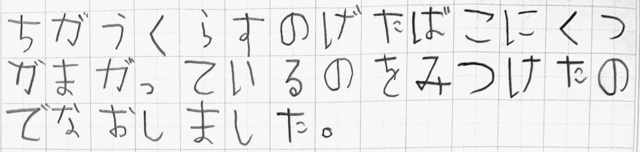 ちがうくらすのげたばこにくつ
がまがっているのをみつけたの
でなおしました。